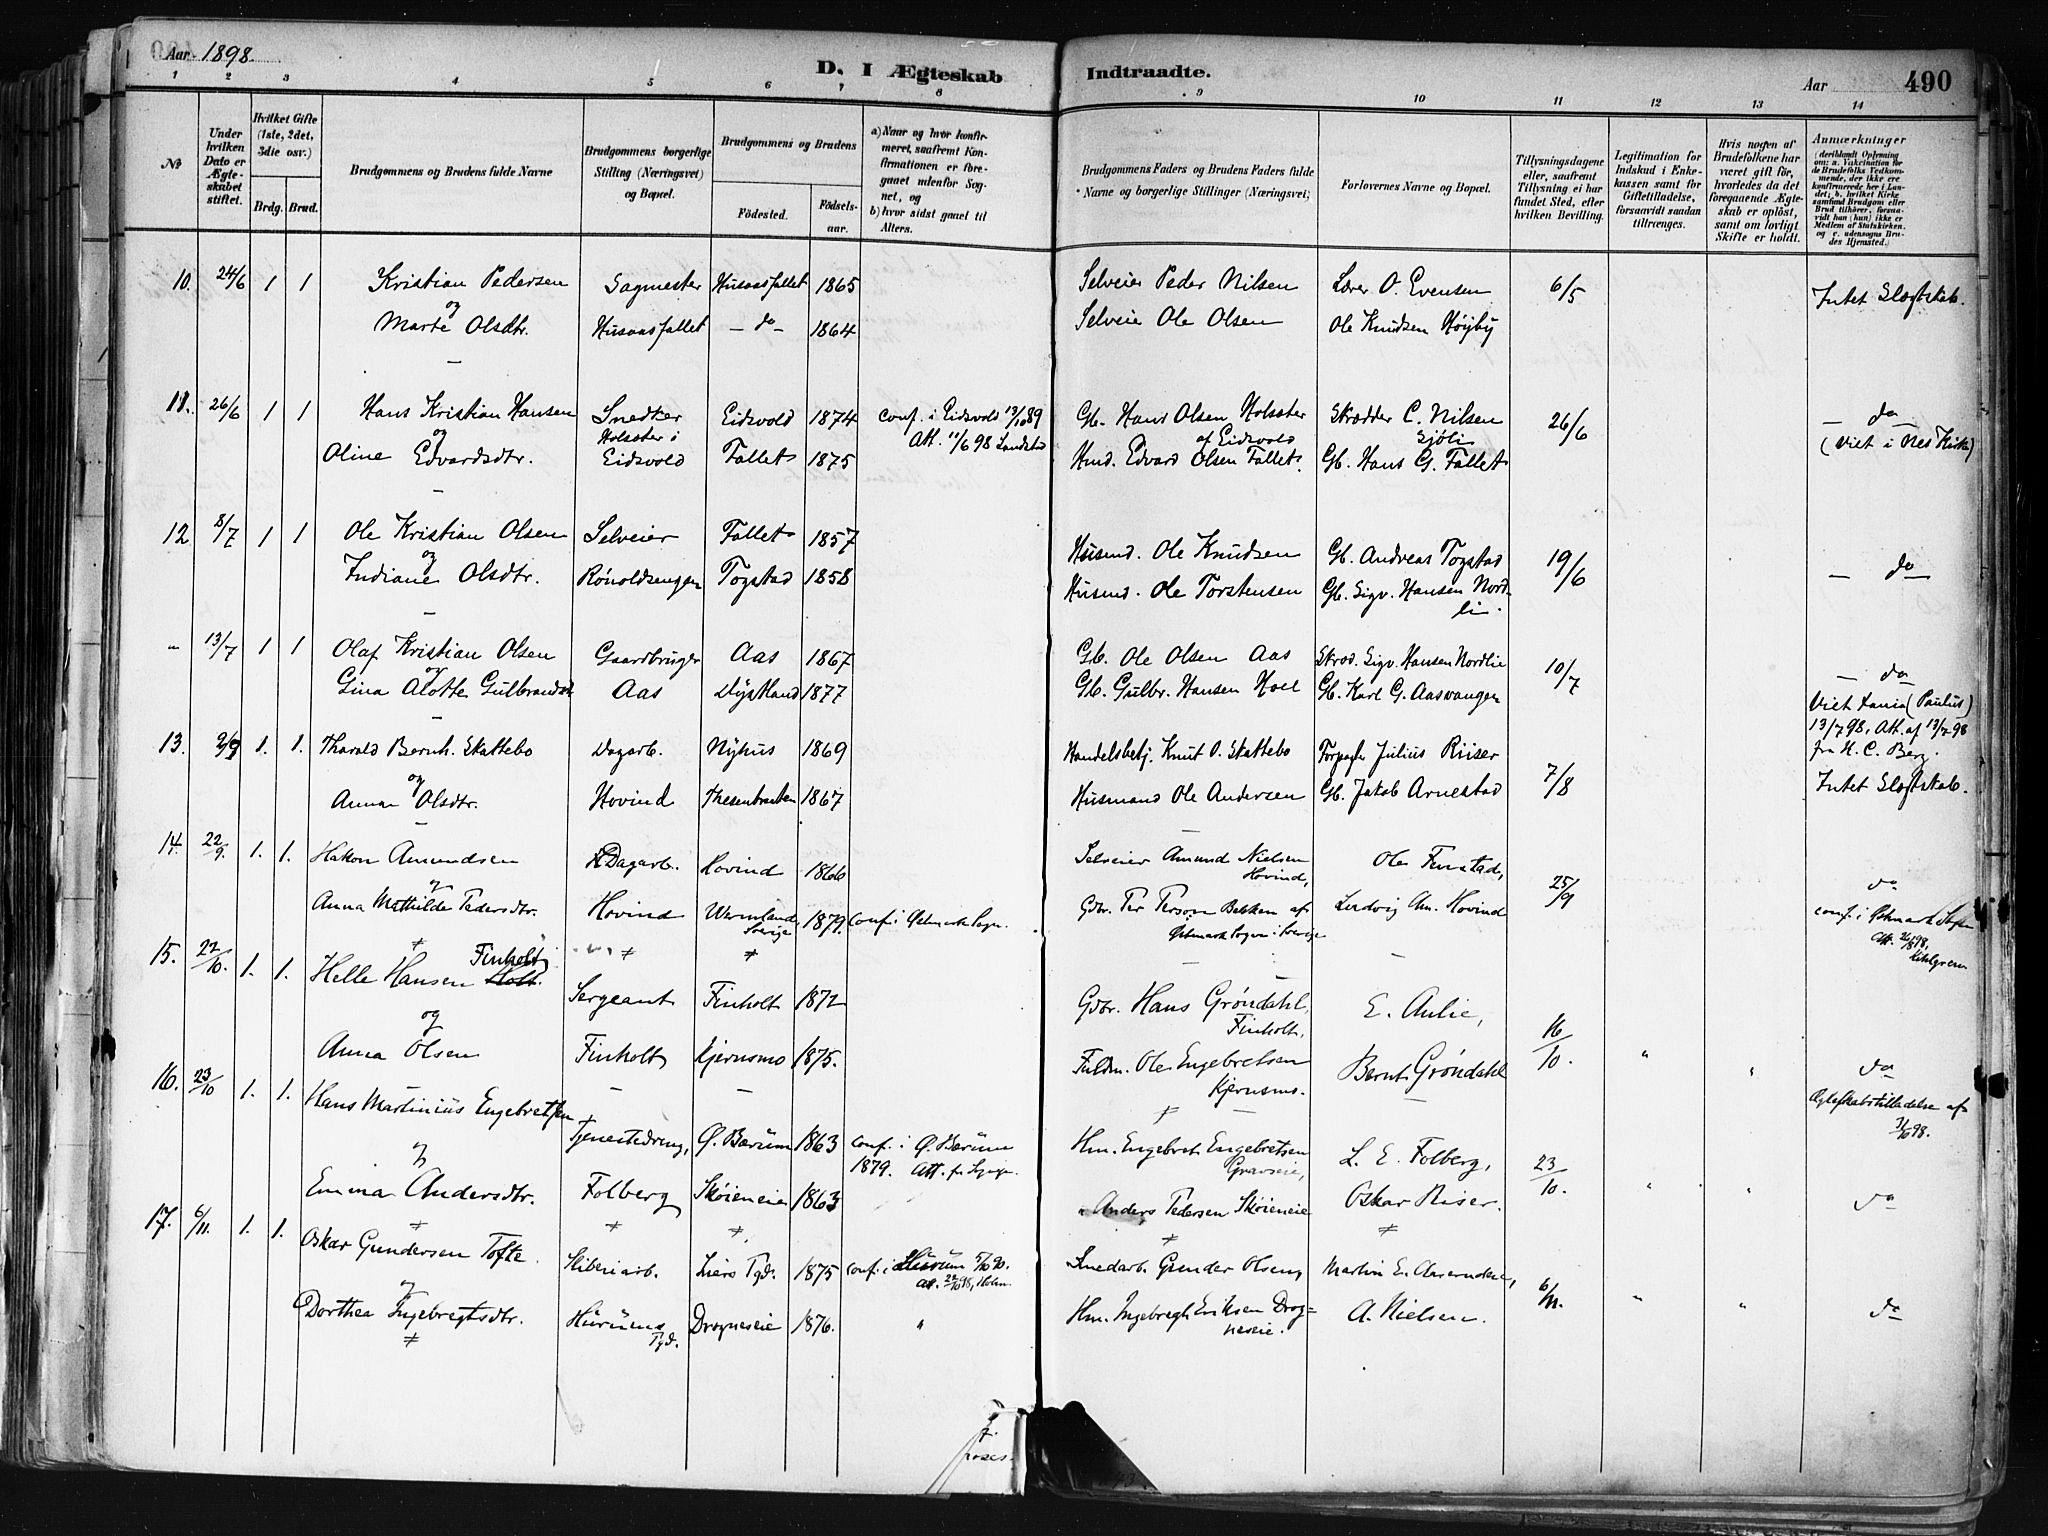 Aar 1898.
D. I Ægteskab Indtraadte.
Aar 490
1 2 3 4 5 6 7 8 9 10 11 12 13 14
No
Under hvilken Dato er Ægteskabet stiftet.
Hvilket Gifte (1ste, 2det, 3die osv.)
Brdg. Brud.
Brudgommens og Brudens fulde Navne
Brudgommens borgerlige Stilling (Næringsvei) og Bopæl.
Brudgommens og Brudens
Födested. Födselsaar.
a) Naar og hvor konfirmeret, saafremt Konfirmationen er foregaaet udenfor Sognet, og
b) hvor sidst gaaet til Alters.
Brudgommens Faders og Brudens Faders fulde Navne og borgerlige Stillinger (Næringsvei)
Forlovernes Navne og Bopæl.
Tillysningsdagene eller, saafremt Tillysning ei har fundet Sted, efter hvilken Bevilling.
Legitimation for Indskud i Enkekassen samt for Giftetilladelse, forsaavidt saadan tiltrænges.
Hvis nogen af Brudefolkene har været gift för, hvorledes da det foregaaende Ægteskab er oplöst, samt om lovligt Skifte er holdt.
Anmærkninger
(deriblandt Oplysning om: a. Vakcination for de Brudefolks Vedkommende, der ikke ere konfirmerede her i Landet; b. hvilket Kirkesamfund Brudgom eller Brud tilhörer, forsaavidt han (hun) ikke er Medlem af Statskirken, og c. udensogns Brudes Hjemsted.)
10. 24/6 1 1 Kristian Pedersen Sagmester Husaasfallet 1865 Selveier Peder Nilsen Lærer O. Evensen 6/5 Intet Slægtskab.
og
Marte Olsdtr. Husaasfallet — do — 1864 Selveie Ole Olsen Ole Knudsen Høiby
11. 26/6 1 1 Hans Kristian Hansen Snedker Eidsvold 1874 conf. i Eidsvold 13/10 89 Gb. Hans Olsen Holsæter Skrædder C. Nilsen 26/6 — do —
og Holsæter i Att. 11/6 98 Landstad af Eidsvold Sjøli (viet i Nes Kirke)
Oline Edvardsdtr. Eidsvold Fallet 1875 Husd. Edvard Olsen Fallet. Gb. Hans G. Fallet
12 8/7 1 1 Ole Kristian Olsen Selveier Fallet 1857 Husmd. Ole Knudsen Gb. Andreas Togstad 19/6 — do —
og
Indiane Olsdtr. Rónoldsengen Togstad 1858 Husmd. Ole Torstensen Gb. Sigv. Hansen Nordli.
" 13/7 1 1 Olaf Kristian Olsen Gaardbruger Aas 1867 Gb. Ole Olsen Aas Skræd. Sigv. Hansen Nordlie 10/7 — do —
og
Gina Alotte Gulbrandsd. Aas Dystland 1877 Gb. Gulbr. Hansen Hoel Gb. Karl G. Aasvangen Viet Xania (Paulus)
13/7 98, Att. af 13/7 98
fra H. C. Berg.
13. 2/9 1. 1. Tharald Bernh. Skattebo Dagarb. Nyhus 1869 Handelsbetj. Knut O. Skattebo Forpagter Julius Riiser 7/8 Intet Slægtskab.
og
Anna Olsdtr. Hovind Thesenbraaten 1867 Husmand Ole Andersen Gb. Jakob Arnestad
14. 22/9. 1. 1. Hakon Amundsen Dagarb. Hovind 1866 Selveier Amund Nielsen Hovind, Ole Finstad, 25/9 do
og
Anna Mathilde Pedersdtr. Hovind Wermland Sverige 1879. conf. i Östmark Sogn. Gdbr. Per Person Bekken af Östmark Sogn i Sverige Ludvig Am. Hovind conf. i Östmark Sogn
Att. 26/8 98,
15. 22/10. 1. 1. Helle Hansen Holt. Finholt Sergeant Finholt 1872 Gdbr. Hans Gröndahl, Finholt, E. Aulie, 16/10.
og
Anna Olsen Finholt Kjernsmo 1875. Fuldm. Ole Engebretsen Kjernsmo. Bernt Gröndahl " " do
16. 23/10 1. 1. Hans Martinius Engebretsen Tjenestedreng, Ø. Bærum 1863 conf. i Ø. Bærum 1879. Att. Hm. Engebret Engebretsen Gravseie, L. E. Folberg, 23/10. Ægteskabstilladelse af
og
Emma Andersdtr. Folberg Sköieneie 1863 " Anders Pedersen Sköieneie Oskar Riser. " " do
17. 6/11. 1. 1. Oskar Gundersen Tofte. Sliberiarb. Liers Pgd. 1875 conf. i Hurum 5/10 90. Att. 22/10 98, Holm. Snedarb. Gunder Olsen, Martin E. 6/11.
og
Dorthea Ingebregtsdtr. Hurums Pgd. Drogneseie 1876. " Hm. Ingebregt Eriksen Drogneseie. A. Nielsen. " " do